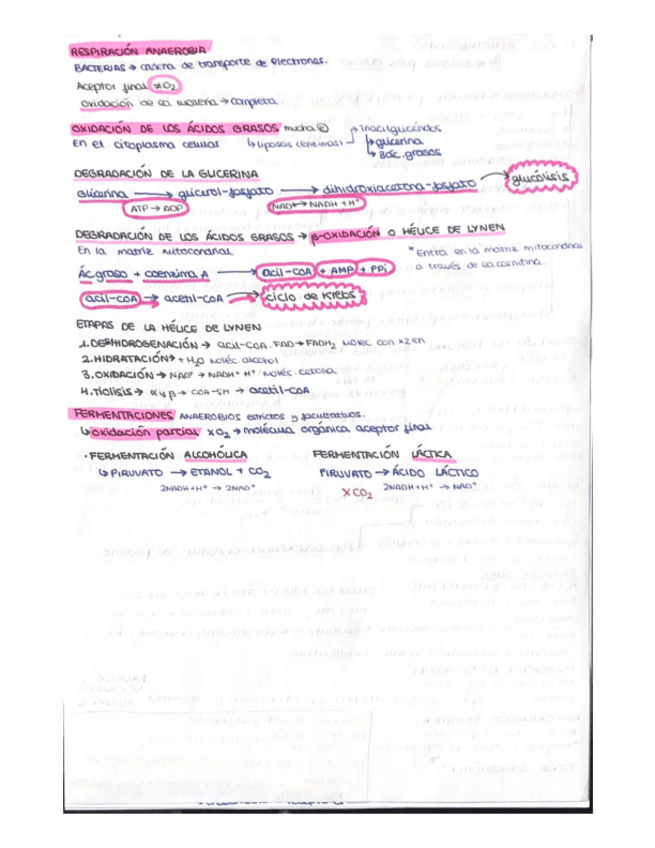 RESPIRACIÓN ANAEROBIA
BACTERIAS → cadena de transporte de electrones.
Aceptor final ≠O2
oxidación de la materia → completa
OXIDACIÓN DE LOS ÁCIDOS GRASOS mucha E → triacilglicéridos
En el citoplasma celular ↳ lipasas (enzimas) → glicerina
→ ác. grasos
DEGRADACIÓN DE LA GLICERINA
Glicerina → glicerol-fosfato → dihidroxiacetona-fosfato → glucólisis
ATP → ADP NAD+ → NADH + H+
DEGRADACIÓN DE LOS ÁCIDOS GRASOS → β-OXIDACIÓN O HÉLICE DE LYNEN
En la matriz mitocondrial
* Entra en la matriz mitocondrial
a través de la carnitina.
Ác. graso + coenzima A → acil-COA + AMP + PPi
acil-COA → acetil-COA → ciclo de Krebs
ETAPAS DE LA HÉLICE DE LYNEN
1. DESHIDROGENACIÓN → acil-COA. FAD → FADH2 moléc con x2 en
2. HIDRATACIÓN → + H2O moléc. alcohol
3. OXIDACIÓN → NAD+ → NADH+ H+ moléc. cetona
4. TIOLISIS → α y β → COA-SH → acetil-COA
FERMENTACIONES ANAEROBIOS estrictos y facultativos.
↳ oxidación parcial x O2 → molécula orgánica aceptor final
· FERMENTACIÓN ALCOHÓLICA
↳ PIRUVATO → ETANOL + CO2
2NADH+H+ → 2NAD+
FERMENTACIÓN LÁCTICA
PIRUVATO → ÁCIDO LÁCTICO
X CO2 2NADH+H+ → NAD+